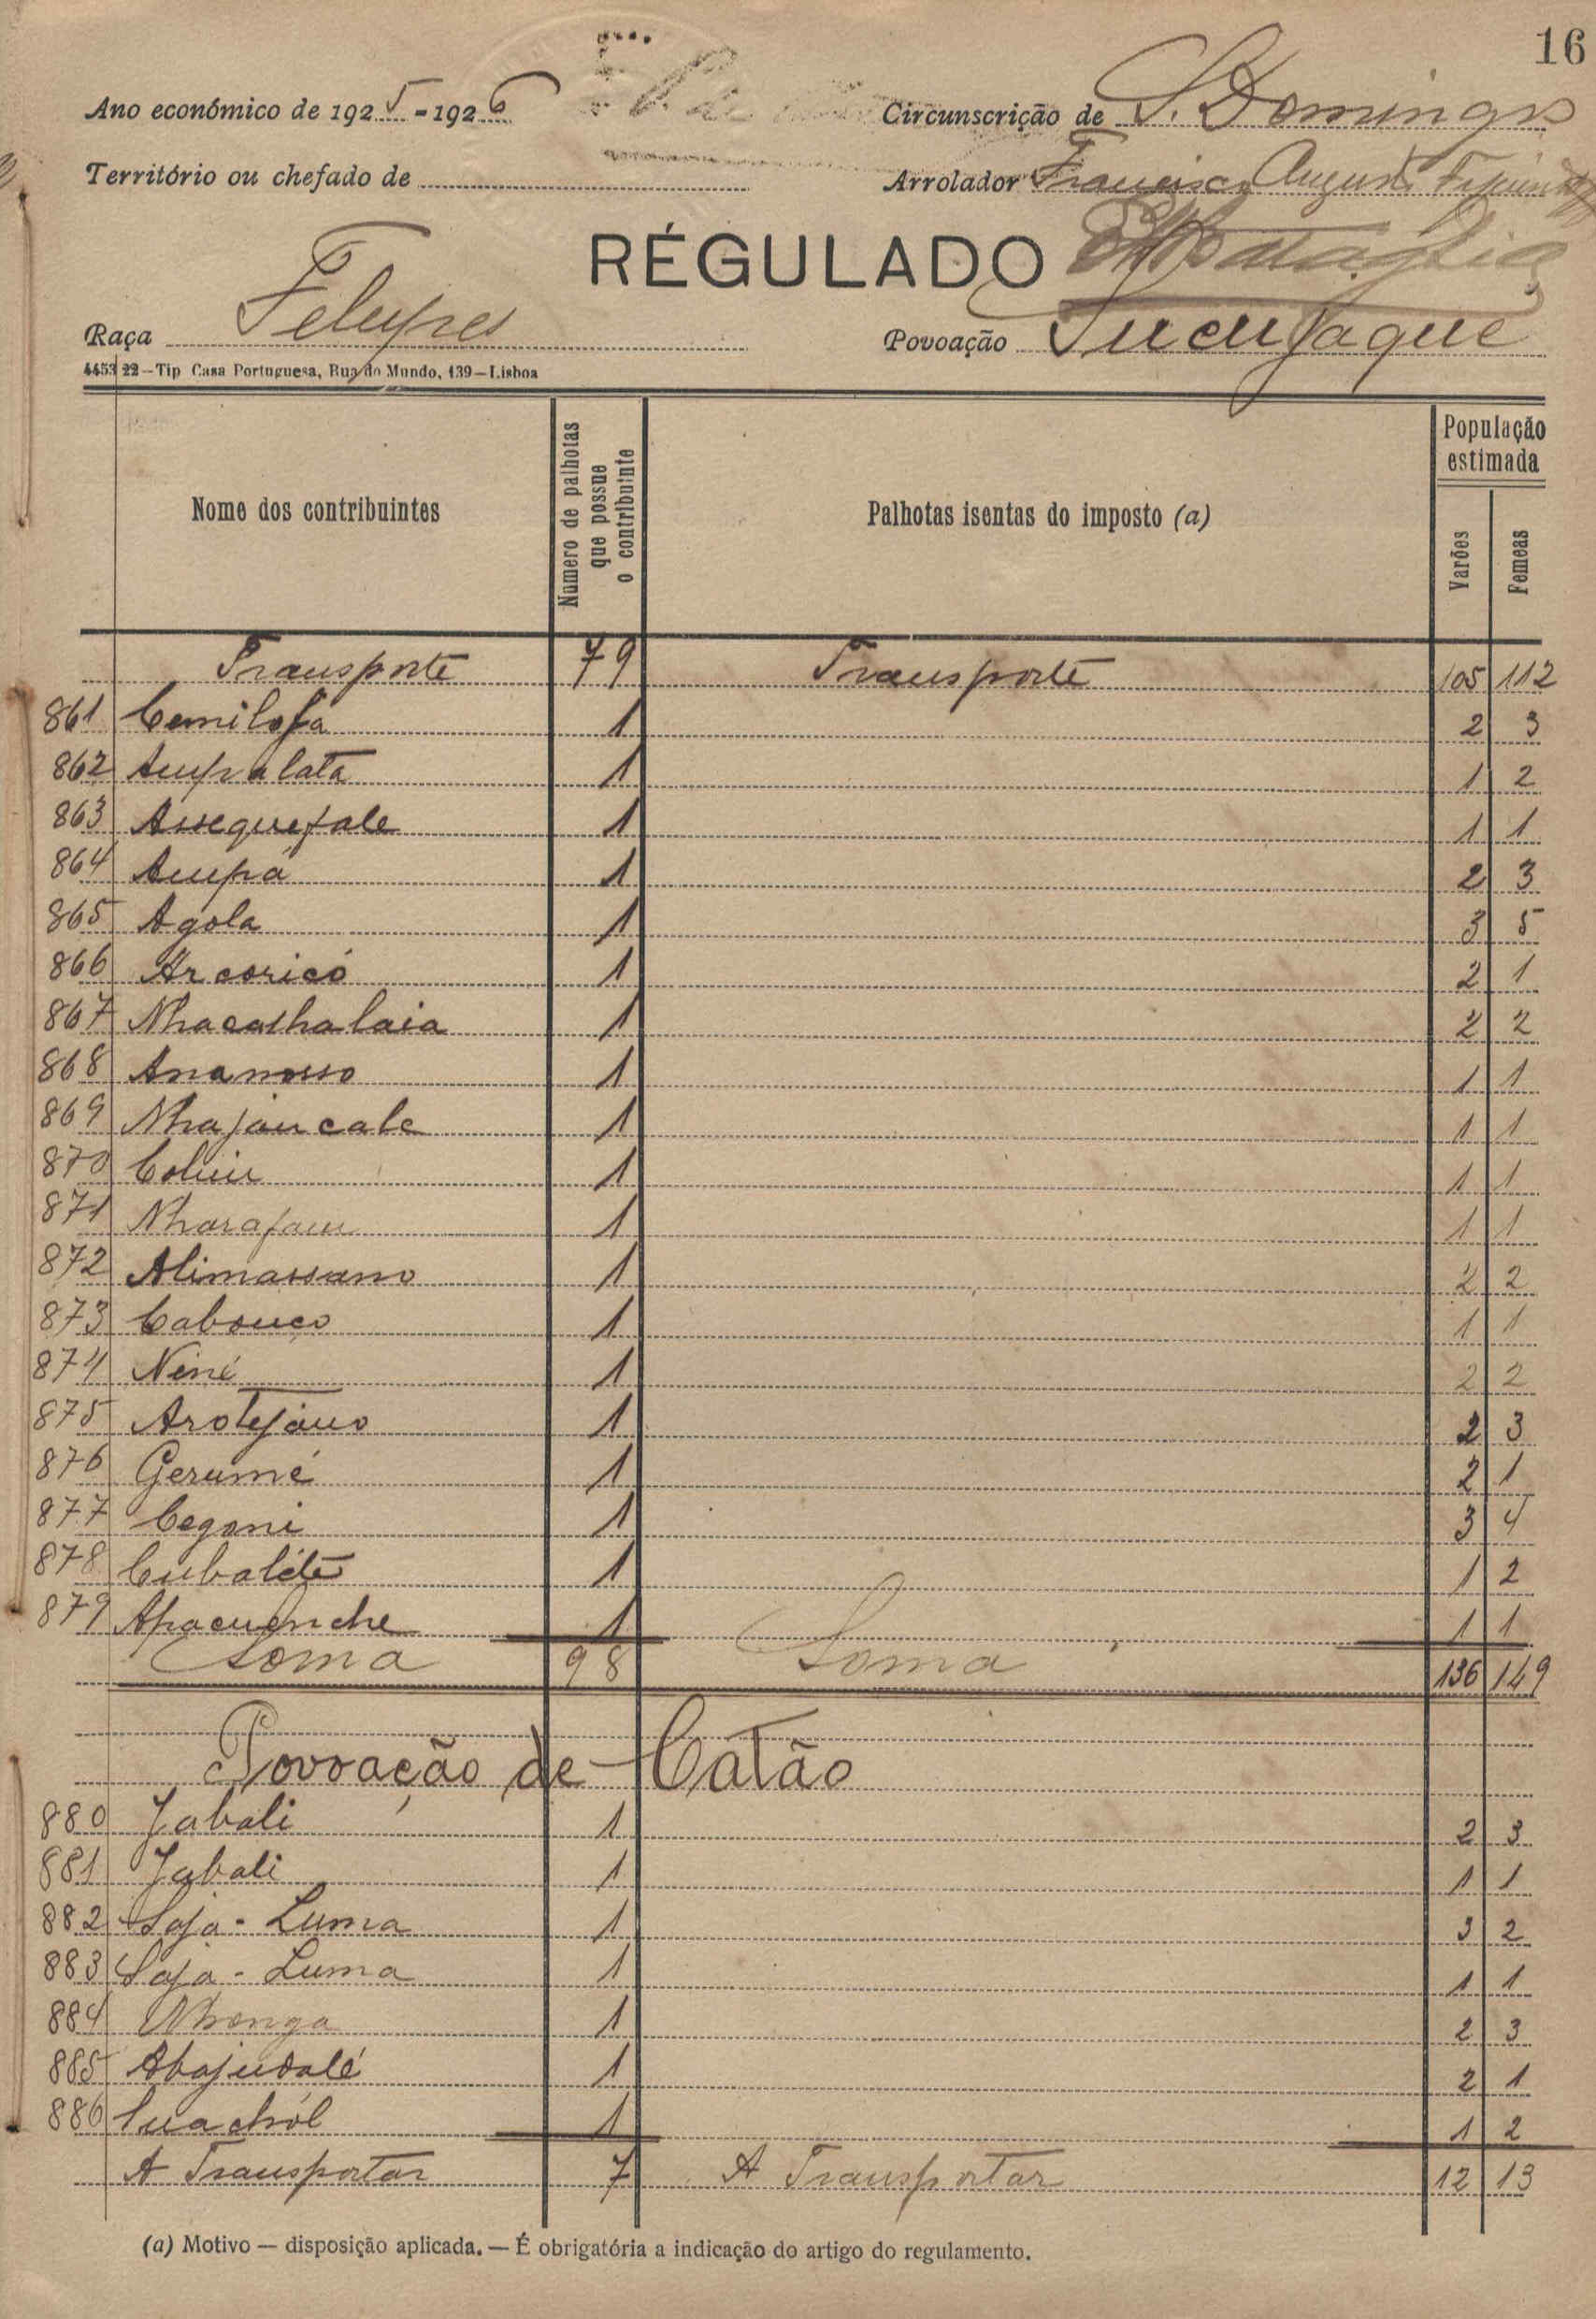 16
Ano económico de 1925-1926 Circunscrição de S. Domingos
Território ou chefado de Arrolador Francisco Augusto
RÉGULADO
Raça Felupes Povoação Sucujaque
4453 22—Tip Casa Portuguesa, Rua do Mundo, 139—Lisboa
Nome dos contribuintes Número de palhotas que possue o contribuinte Palhotas isentas do imposto (a) População estimada Varões Femeas
Transporte 79 Transporte 105 112
861 1 2 3
862 Ampalata 1 1 2
863 1 1 1
864 Ampá 1 2 3
865 Agola 1 3 5
866 Arcoricó 1 2 1
867 Nhacashalaia 1 2 2
868 1 1 1
869 Nhajaucale 1 1 1
870 1 1 1
871 1 1 1
872 Alimassano 1 2 2
873 Cabouço 1 1 1
874 Niné 1 2 2
875 Arotejauo 1 2 3
876 Gerumé 1 2 1
877 Cegoni 1 3 4
878 Cubaléte 1 1 2
879 1 1 1
Soma 98 Soma 136 149
Povoação de Catão
880 Jabali 1 2 3
881 Jabali 1 1 1
882 Saja-Luma 1 3 2
883 Saja-Luma 1 1 1
884 Nhonga 1 2 3
885 Abajudalé 1 2 1
886 1 1 2
A Transportar 7 A Transportar 12 13
(a) Motivo — disposição aplicada. — É obrigatória a indicação do artigo do regulamento.